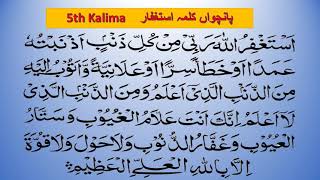 پانچواں کلمہ استغفار 5th Kalima
اَسْتَغْفِرُ اللهَ رَبِّىْ مِنْ كُلِّ ذَنْۢبٍ اَذْنَبْتُهٗ
عَمَدًا اَوْ خَطَأً سِرًّا اَوْ عَلَانِيَةً وَّاَتُوْبُ اِلَيْهِ
مِنَ الذَّنْۢبِ الَّذِىْٓ اَعْلَمُ وَمِنَ الذَّنْۢبِ الَّذِىْ
لَآ اَعْلَمُ اِنَّكَ اَنْتَ عَلَّامُ الْغُيُوْبِ وَسَتَّارُ
الْعُيُوْبِ وَغَفَّارُ الذُّنُوْبِ وَلَا حَوْلَ وَلَا قُوَّةَ
اِلَّا بِاللهِ الْعَلِىِّ الْعَظِيْمِ